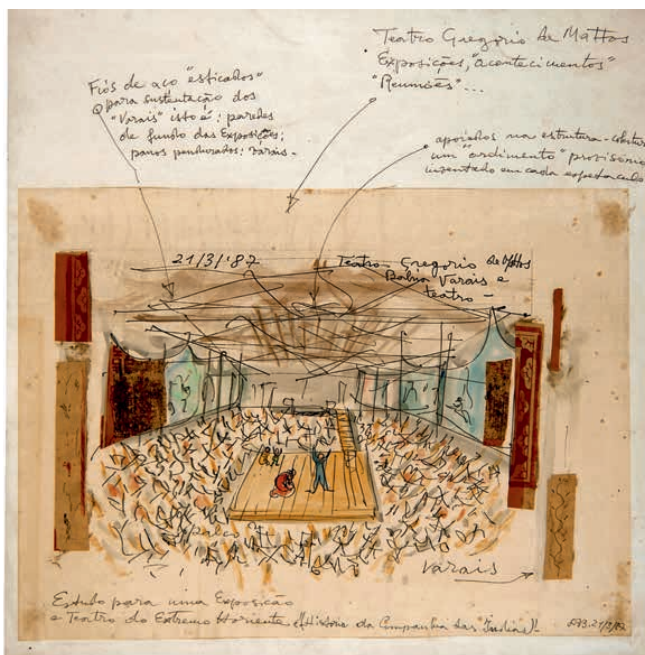 Teatro Gregorio de Mattos
Exposições, "acontecimentos"
"Reuniões"...
Fios de aço "esticados"
para sustentação dos
"Varais" isto é: paredes
de fundo das Exposições;
panos pendurados: varais.-
apoiados na estrutura-cobertura
um "ardimento" provisório
inventado em cada espetaculo
21/3/'87
Teatro Gregorio de Mattos
Bahia Varais e
teatro -
palco
varais
Estudo para uma Exposição
e Teatro do Extremo Horiente ((Historia da Companhia das Indias)-
21/3/87